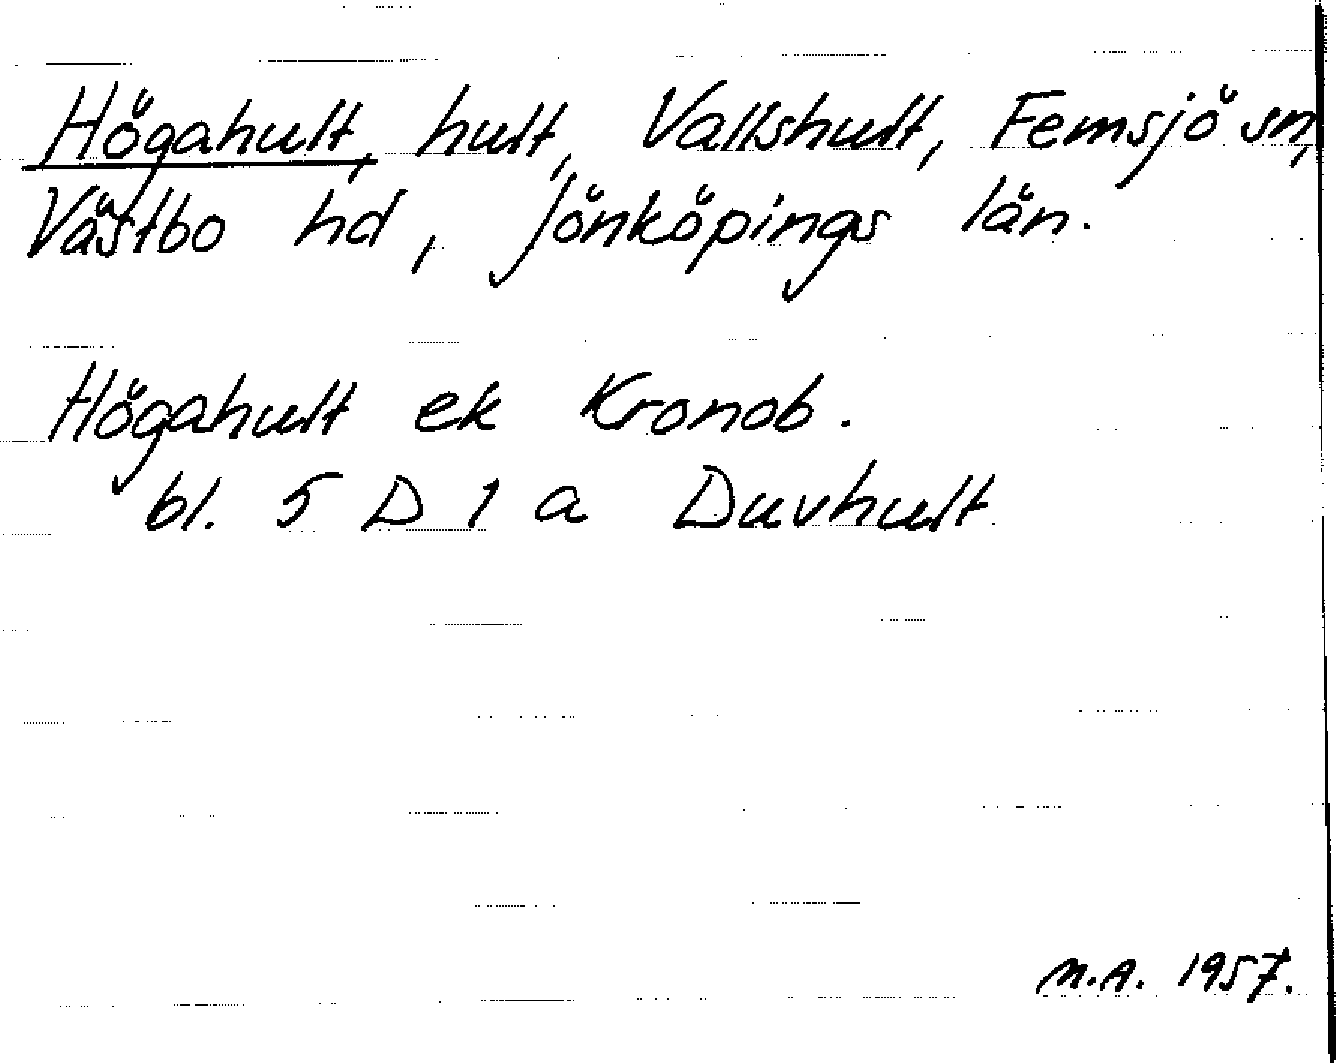 Högahult, hult, Vallshult, Femsjö sn,
Västbo hd, Jönköpings län.
Högahult ek Kronob.
bl. 5 D 1 a Duvhult
M.A. 1957.